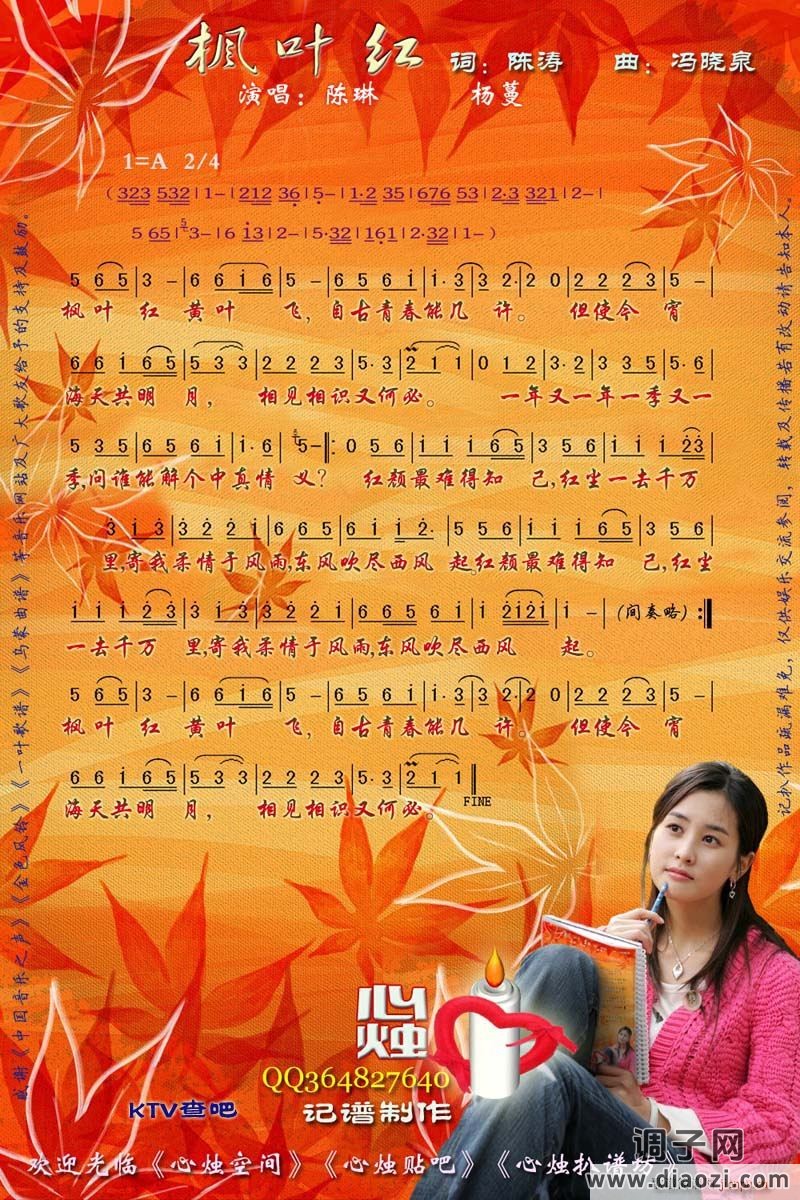 枫叶红 词：陈涛 曲：冯晓泉
演唱：陈琳 杨蔓
1=A 2/4
( 323 532 | 1 - | 212 36 | 5 - | 1·2 35 | 676 53 | 2·3 321 | 2 - |
5 65 | 3 - | 6 13 | 2 - | 5·32 | 161 | 2·32 | 1 - )
5 6 5 | 3 - | 6 6 i 6 | 5 - | 6 5 6 i | i· 3 | 3· 2 0 | 2 2 2 3 | 5 -
枫叶 红 黄叶 飞，自古青春能几 许。 但使今 宵
6 6 i 6 5 | 5 3 3 | 2 2 2 3 | 5· 3 | 2 1 1 | 0 1 2 | 3· 2 | 3 3 2 | 5· 6
海天共明 月， 相见相识又何必。 一年又一年一季又一
5 3 5 | 6 5 6 i | i· 6 | 5 - |: 0 5 6 | i i i 6 5 | 5 5 6 | i i i 2 3
季,问谁能解个中真情 义? 红颜最难得知 己,红尘一去千万
3 i 3 | 3 2 2 i | 6 5 6 i | i 2· | 5 5 6 | i i i 6 5 | 3 5 6
里,寄我柔情于风雨,东风吹尽西风 起.红颜最难得知 己,红尘
i i i 2 3 | 3 i 3 | 3 2 2 i | 6 6 5 6 | i i 2 i 2 i | i - | (间奏略) :||
一去千万 里,寄我柔情于风雨,东风吹尽西风 起。
5 6 5 | 3 - | 6 6 i 6 | 5 - | 6 5 6 i | i· 3 | 3· 2 0 | 2 2 2 3 | 5 -
枫叶 红 黄叶 飞，自古青春能几 许。 但使今 宵
6 6 i 6 5 | 5 3 3 | 2 2 2 3 | 5· 3 | 2 1 1 ||
FINE
海天共明 月， 相见相识又何必。
感谢《中国音乐之声》《金色风铃》《一叶歌谱》《乌蒙曲谱》等音乐网站及广大歌友给予的支持及鼓励。
记扒作品疏漏难免，仅供娱乐交流参阅，转载及传播若有改动请告知本人。
心烛
QQ364827640
KTV查吧 记谱制作
欢迎光临《心烛空间》《心烛贴吧》《心烛扒谱坊
调子网
www.diaozi.com